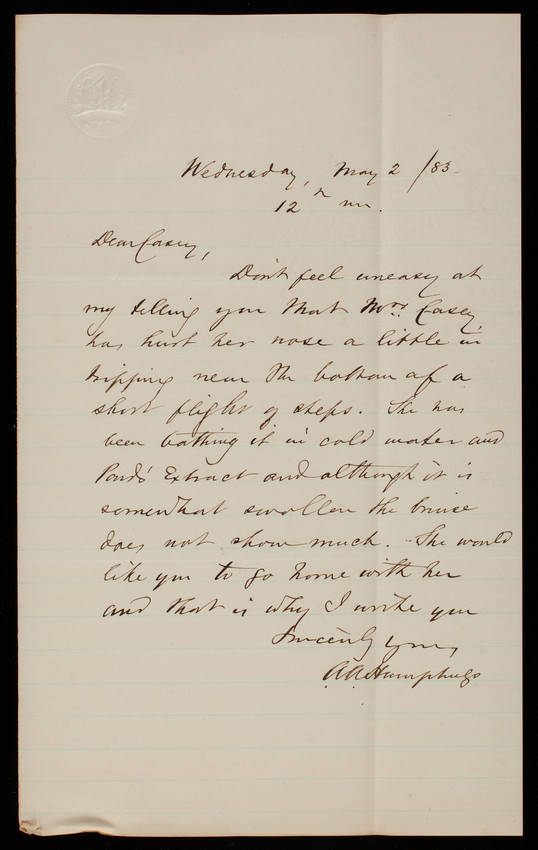 Wednesday, May 2 /83.
12 h m.
Dear Casey,
Don't feel uneasy at
my telling you that Mrs. Casey
has hurt her nose a little in
tripping near the bottom of a
short flight of steps. She has
been bathing it in cold water and
Pond's Extract and although it is
somewhat swollen the bruise
does not show much. She would
like you to go home with her
and that is why I write you
Sincerely yours,
A.A. Humphreys